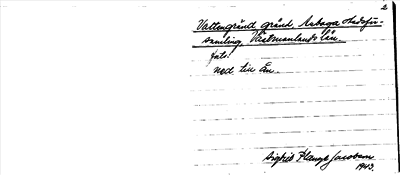 2
Vattengränd gränd, Arboga stadsför-
samling, Västmanlands län.
fots.
ned till ån.
Sigfrid Jacobson
1943.